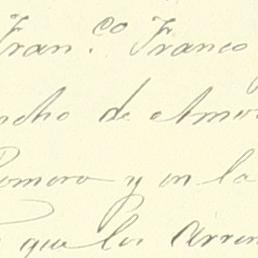 Fran.co Franco
ncho de Amo
Romero y en la
que los Arren